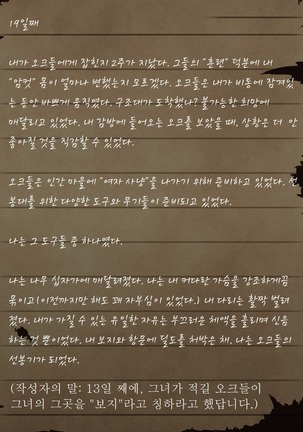 19일째
내가 오크들에게 잡힌지 2주가 지났다. 그들의 "훈련" 덕분에 내
"암컷" 몸이 얼마나 변했는지 모르겠다. 오크들은 내가 비통에 잠겨있
는 동안 바쁘게 움직였다. 구조대가 도착했나? 불가능한 희망에
매달리고 있었다. 내 감방에 들어오는 오크를 보았을 때, 상황은 더 안
좋아질 것을 직감할 수 있었다.
오크들은 인간 마을에 "여자 사냥"을 나가기 위해 준비하고 있었다. 선
봉대를 위한 다양한 도구와 무기들이 준비되고 있었다.
나는 그 도구들 중 하나였다.
나는 나무 십자가에 매달려졌다. 나는 내 커다란 가슴을 강조하게끔
묶이고(이전까지만 해도 꽤 자부심이 있었다.) 내 다리는 활짝 벌려
졌다. 내가 가질 수 있는 유일한 자유는 부끄러운 체액을 흘리며 신음
하는 것 뿐이었다. 내 보지와 항문에 딜도를 쳐박은 채, 나는 오크들의
선봉기가 되었다.
(작성자의 말: 13일 째에, 그녀가 적길 오크들이
그녀의 그곳을 "보지"라고 칭하라고 했답니다.)